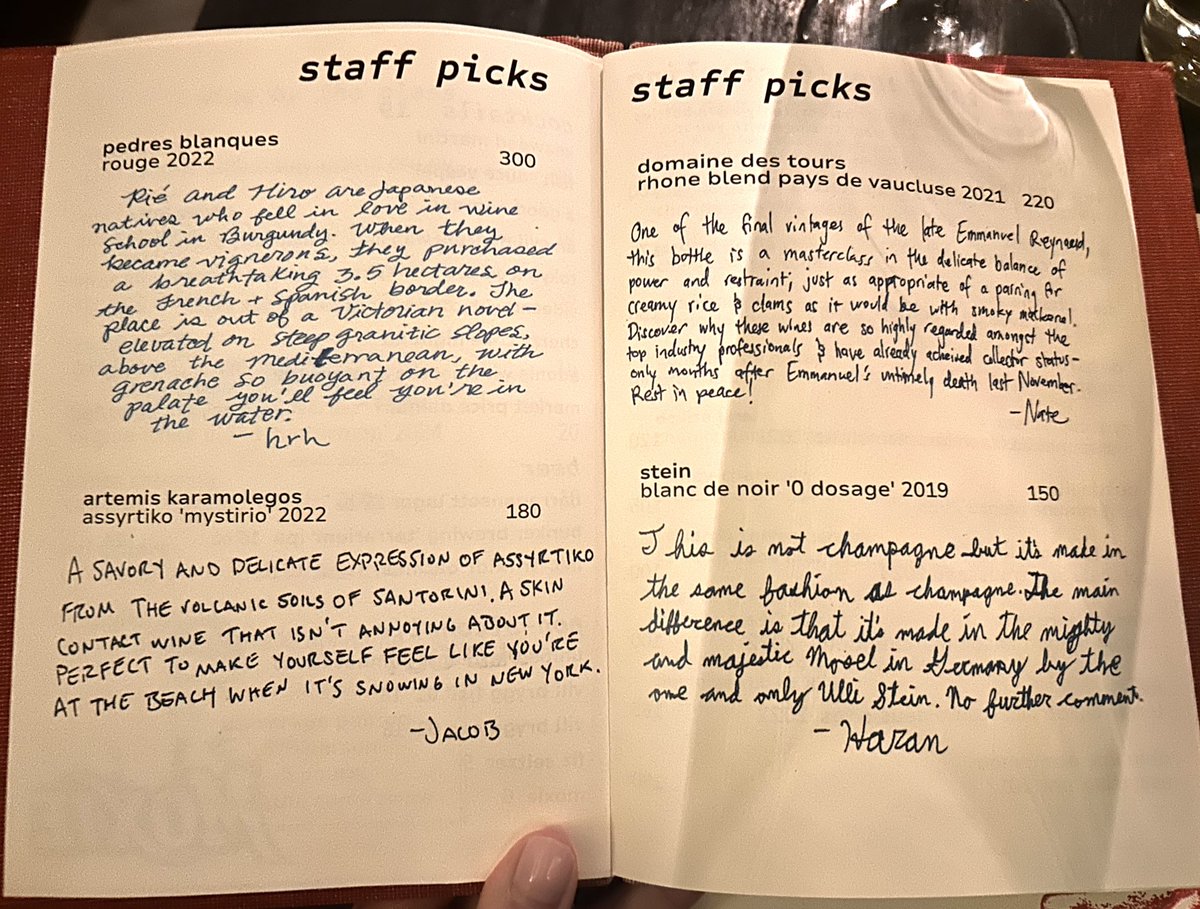 staff picks
pedres blanques
rouge 2022 300
Rié and Hiro are Japanese
natives who fell in love in wine
school in Burgundy. When they
became vignerons, they purchased
a breathtaking 3.5 hectares on
the French + Spanish border. The
place is out of a Victorian novel –
elevated on steep granitic slopes,
above the Mediterranean, with
grenache so buoyant on the
palate you'll feel you're in
the water.
– hrh
artemis karamolegos
assyrtiko 'mystirio' 2022 180
A SAVORY AND DELICATE EXPRESSION OF ASSYRTIKO
FROM THE VOLCANIC SOILS OF SANTORINI. A SKIN
CONTACT WINE THAT ISN'T ANNOYING ABOUT IT.
PERFECT TO MAKE YOURSELF FEEL LIKE YOU'RE
AT THE BEACH WHEN IT'S SNOWING IN NEW YORK.
-JACOB
staff picks
domaine des tours
rhone blend pays de vaucluse 2021 220
One of the final vintages of the late Emmanuel Reynaud,
this bottle is a masterclass in the delicate balance of
power and restraint; just as appropriate of a pairing for
creamy rice & clams as it would be with smoky
Discover why these wines are so highly regarded amongst the
top industry professionals & have already acheived collector status-
only months after Emmanuel's untimely death last November.
Rest in peace!
-Nate
stein
blanc de noir '0 dosage' 2019 150
This is not champagne but it's made in
the same fashion as champagne. The main
difference is that it's made in the mighty
and majestic Mosel in Germany by the
one and only Ulli Stein. No further comment.
- Haran